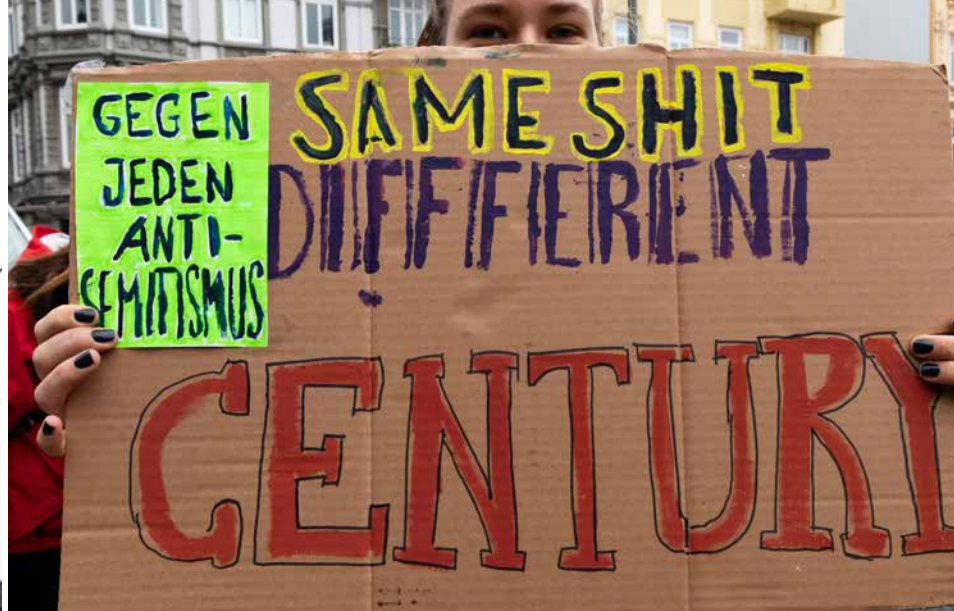 GEGEN
JEDEN
ANTI-
SEMITISMUS
SAME SHIT
DIFFERENT
CENTURY